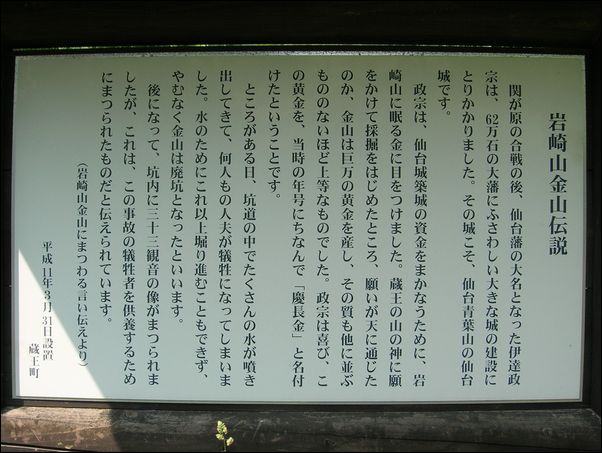 岩崎山金山伝説
関が原の合戦の後、仙台藩の大名となった伊達政
宗は、62万石の大藩にふさわしい大きな城の建設に
とりかかりました。その城こそ、仙台青葉山の仙台
城です。
政宗は、仙台城築城の資金をまかなうために、岩
崎山に眠る金に目をつけました。蔵王の山の神に願
をかけて採掘をはじめたところ、願いが天に通じた
のか、金山は巨万の黄金を産し、その質も他に並ぶ
もののないほど上等なものでした。政宗は喜び、こ
の黄金を、当時の年号にちなんで「慶長金」と名付
けたということです。
ところがある日、坑道の中でたくさんの水が噴き
出してきて、何人もの人夫が犠牲になってしまいま
した。水のためにこれ以上堀り進むこともできず、
やむなく金山は廃坑となったといいます。
後になって、坑内に三十三観音の像がまつられま
したが、これは、この事故の犠牲者を供養するため
にまつられたものだと伝えられています。
（岩崎山金山にまつわる言い伝えより）
平成11年3月31日設置
蔵王町